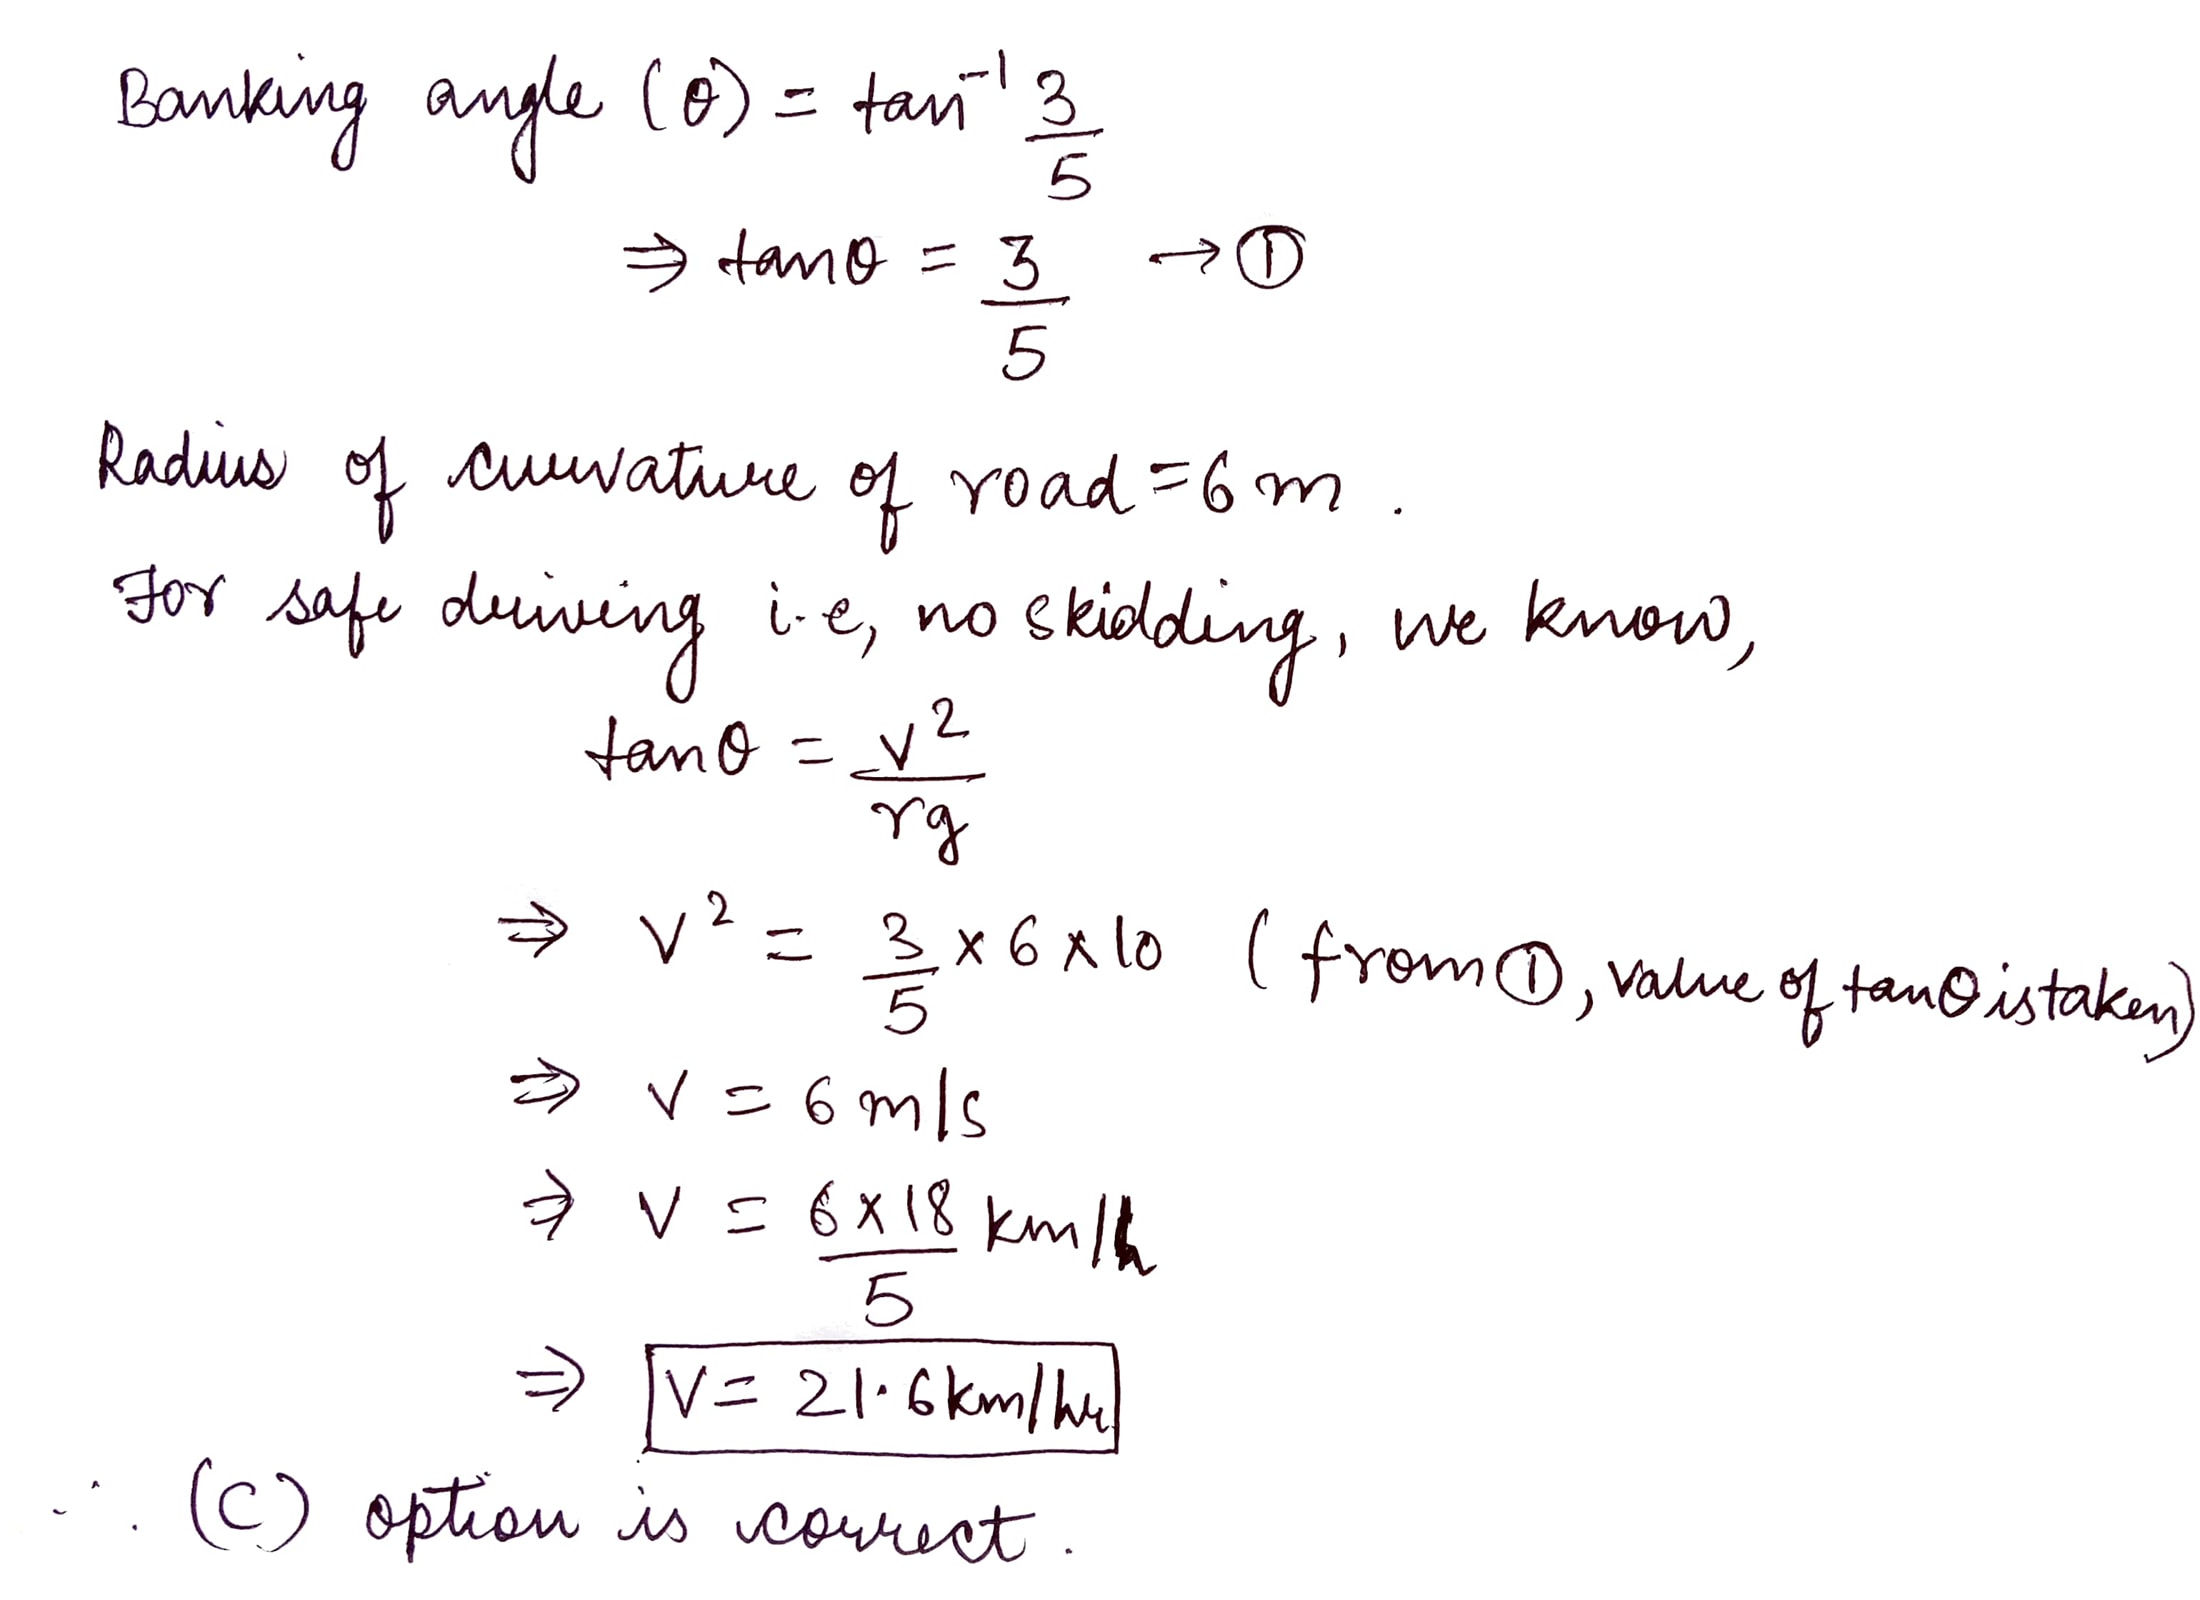 Banking angle (θ) = tan⁻¹ 3/5
⇒ tanθ = 3/5 → ①
Radius of curvature of road = 6 m.
For safe driving i.e, no skidding, we know,
tanθ = v²/rg
⇒ v² = 3/5 × 6 × 10 (from ①, value of tanθ is taken)
⇒ v = 6 m/s
⇒ v = 6×18/5 km/h
⇒ V = 21.6 km/hr
∴ (C) option is correct.